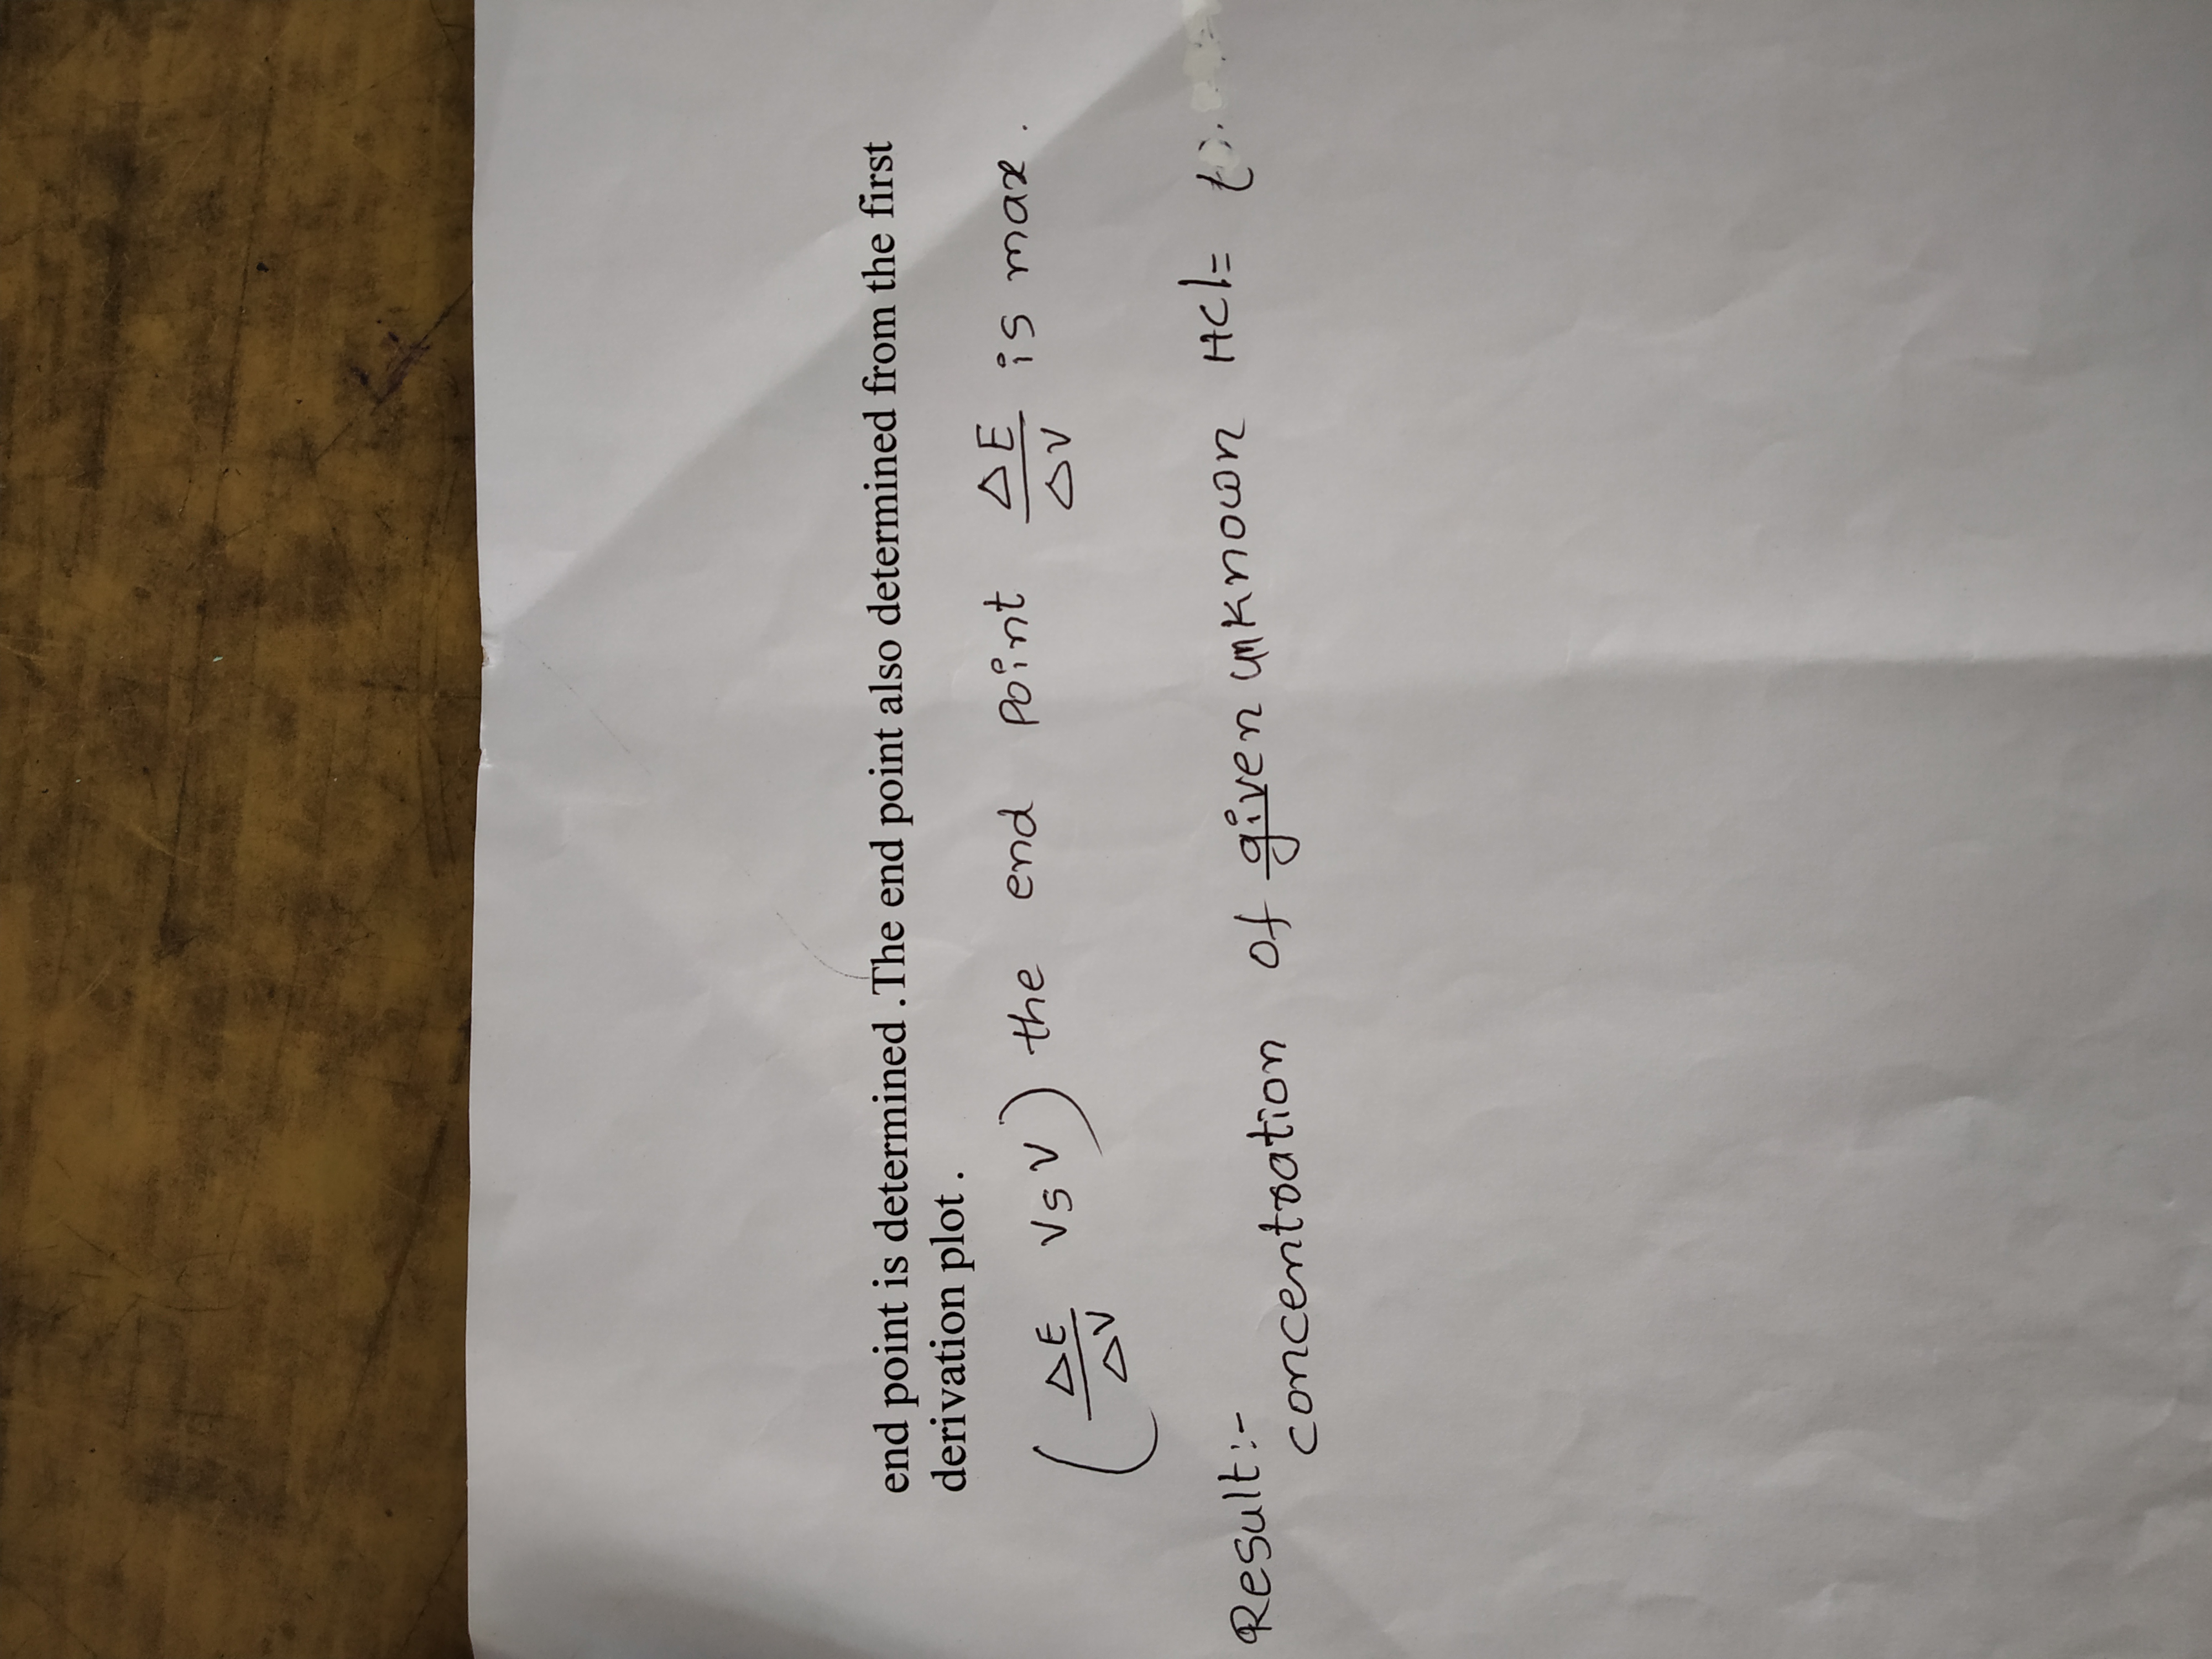 end point is determined .The end point also determined from the first
derivation plot .
(ΔE/ΔV vs V) the end point ΔE/ΔV is max.
Result:-
concentration of given unknown HCl=